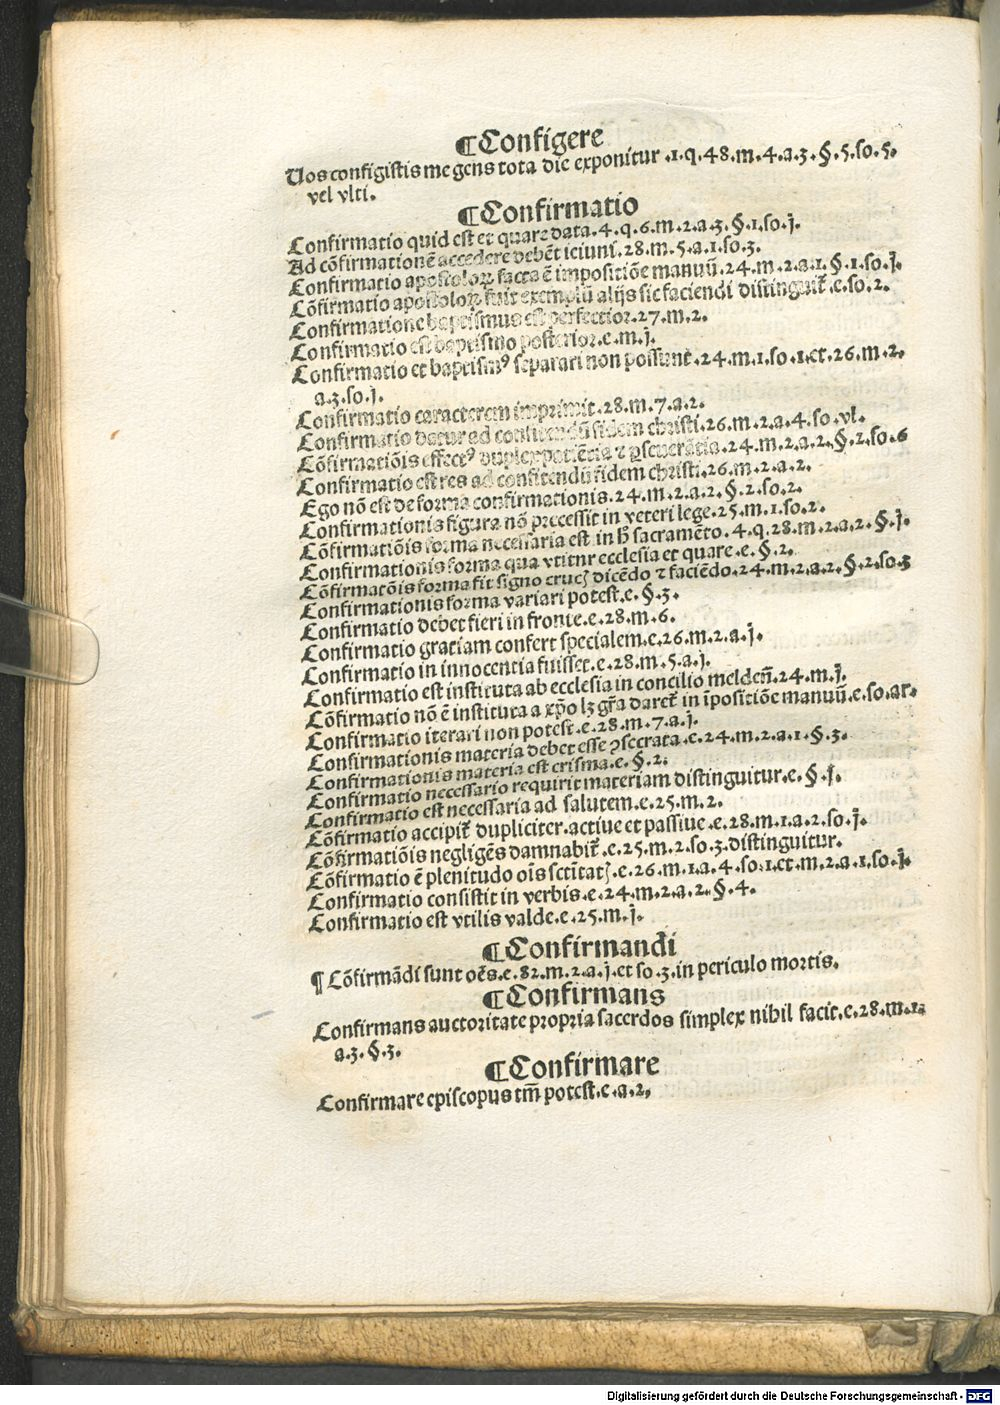 ¶Configere
Uos configistis me gens tota die exponitur .1.q.48.m.4.a.3.§.5.so.5.
vel vlti.
¶Confirmatio
Confirmatio quid est et quare data.4.q.6.m.2.a.3.§.1.so.j.
Ad cōfirmationē accedere debēt ieiuni.28.m.5.a.1.so.3.
Confirmatio apostoloꝝ facta ē impositiōe manuū.24.m.2.a.1.§.1.so.j.
Cōfirmatio apostoloꝝ fuit exemplū alijs sic faciendi distinguit᷑.e.so.2.
Confirmatione baptismus est perfectior.27.m.2.
Confirmatio est baptismo posterior.e.m.j.
Confirmatio et baptismꝰ separari non possunt.24.m.1.so.1.et.26.m.2.
a.3.so.j.
Confirmatio caracterem imprimit.28.m.7.a.2.
Confirmatio datur ad confitendū fidem christi.26.m.2.a.4.so.vl.
Cōfirmatiōis effectꝰ duplex potētia ⁊ ꝑseuerātia.24.m.2.a.2.§.2.so.6
Confirmatio est res ad confitendū fidem christi.26.m.2.a.2.
Ego nō est de forma confirmationis.24.m.2.a.2.§.2.so.2.
Confirmationis figura nō precessit in veteri lege.25.m.1.so.2.
Cōfirmatiōis forma necessaria est in h̓ sacramēto.4.q.28.m.2.a.2.§.j.
Confirmationis forma qua vtitur ecclesia et quare.e.§.2.
Cōfirmatōis forma fit signo crucꝭ dicēdo ⁊ faciēdo.24.m.2.a.2.§.2.so.3
Confirmationis forma variari potest.e.§.3.
Confirmatio debet fieri in fronte.e.28.m.6.
Confirmatio gratiam confert specialem.e.26.m.2.a.j.
Confirmatio in innocentia fuisset.e.28.m.5.a.j.
Confirmatio est instituta ab ecclesia in concilio melden̄.24.m.j.
Cōfirmatio nō ē instituta a xp̄o lꝫ gr̄a daret᷑ in īpositiōe manuū.e.so.ar.
Confirmatio iterari non potest.e.28.m.7.a.j.
Confirmationis materia debet esse ꝯsecrata.e.24.m.2.a.1.§.3.
Confirmationis materia est crisma.e.§.2.
Confirmatio necessario requirit materiam distinguitur.e.§.j.
Confirmatio est necessaria ad salutem.e.25.m.2.
Cōfirmatio accipit᷑ dupliciter.actiue et passiue.e.28.m.1.a.2.so.j.
Cōfirmatiōis negligēs damnabit᷑.e.25.m.2.so.3.distinguitur.
Cōfirmatio ē plenitudo oīs sc̄titatꝭ.e.26.m.1.a.4.so.1.et.m.2.a.1.so.j.
Confirmatio consistit in verbis.e.24.m.2.a.2.§.4.
Confirmatio est vtilis valde.e.25.m.j.
¶Confirmandi
¶ Cōfirmādi sunt oēs.e.82.m.2.a.j.et so.3.in periculo mortis.
¶Confirmans
Confirmans auctoritate propria sacerdos simplex nihil facit.e.28.m.1.
a.3.§.3.
¶Confirmare
Confirmare episcopus tm̄ potest.e.a.2.
Digitalisierung gefördert durch die Deutsche Forschungsgemeinschaft - DFG